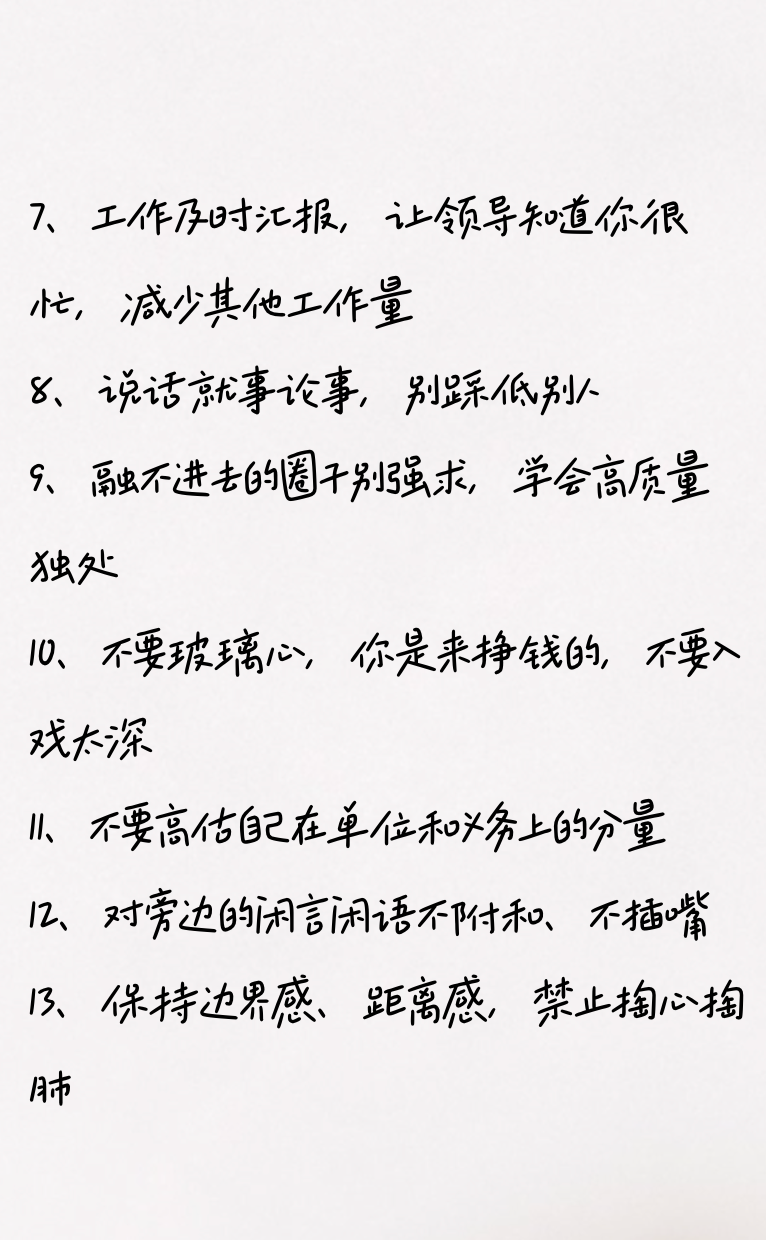 7、工作及时汇报，让领导知道你很
忙，减少其他工作量
8、说话就事论事，别踩低别人
9、融不进去的圈子别强求，学会高质量
独处
10、不要玻璃心，你是来挣钱的，不要入
戏太深
11、不要高估自己在单位和义务上的分量
12、对旁边的闲言闲语不附和、不插嘴
13、保持边界感、距离感，禁止掏心掏
肺